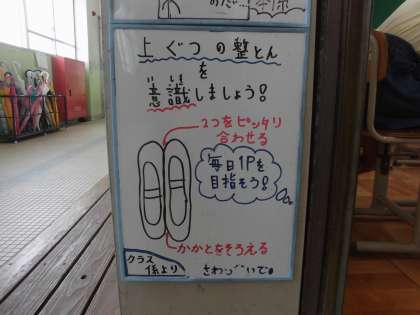 上ぐつの整とん
を
意識しましょう!
いしき
2つをピッタリ
合わせる
毎日1Pを
目指そう!
かかとをそろえる
クラス
係より
さわっついで。